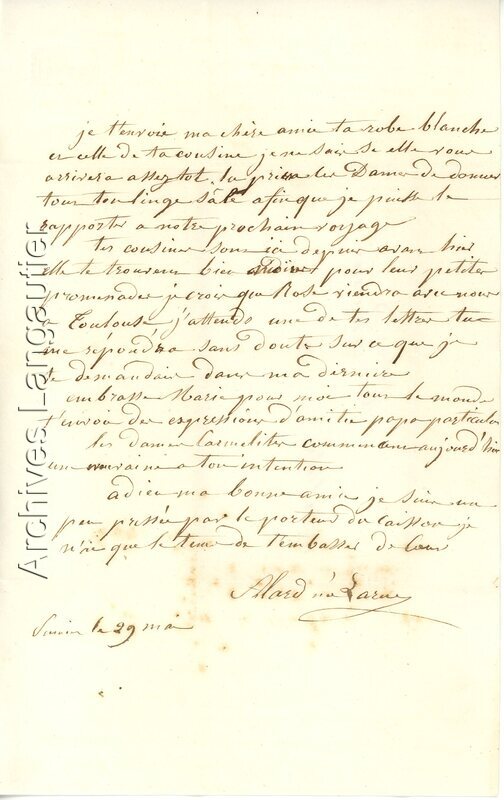 je t'envoie ma chère amie ta robe blanche
et celle de ta cousine je ne sais se elle vous
arrivera assez tot, tu priera les Dames de donner
tout ton linge sâle afin que je puisse le
rapporter a notre prochain voyage
tes cousines sont ici depuis avant hier
elle te trouvent bien pour leur petites
promenades je crois que Rose viendra avec nous
a Toulouse j'attends une de tes lettres tu
me répondra sans doute sur ce que je
te demandais dans ma derniere
embrasse Marie pour moi tout le monde
t'envoi des expressions d'amitie papa particulie
les dames Carmelites commencent aujourd'hui
une neuvaine a ton intention
adieu ma bonne amie je suis un
peu pressée par le porteur du carton je
n'ai que le tems de t'embasser de Cœur
Allard née
le 29 mai
Archives Langautier